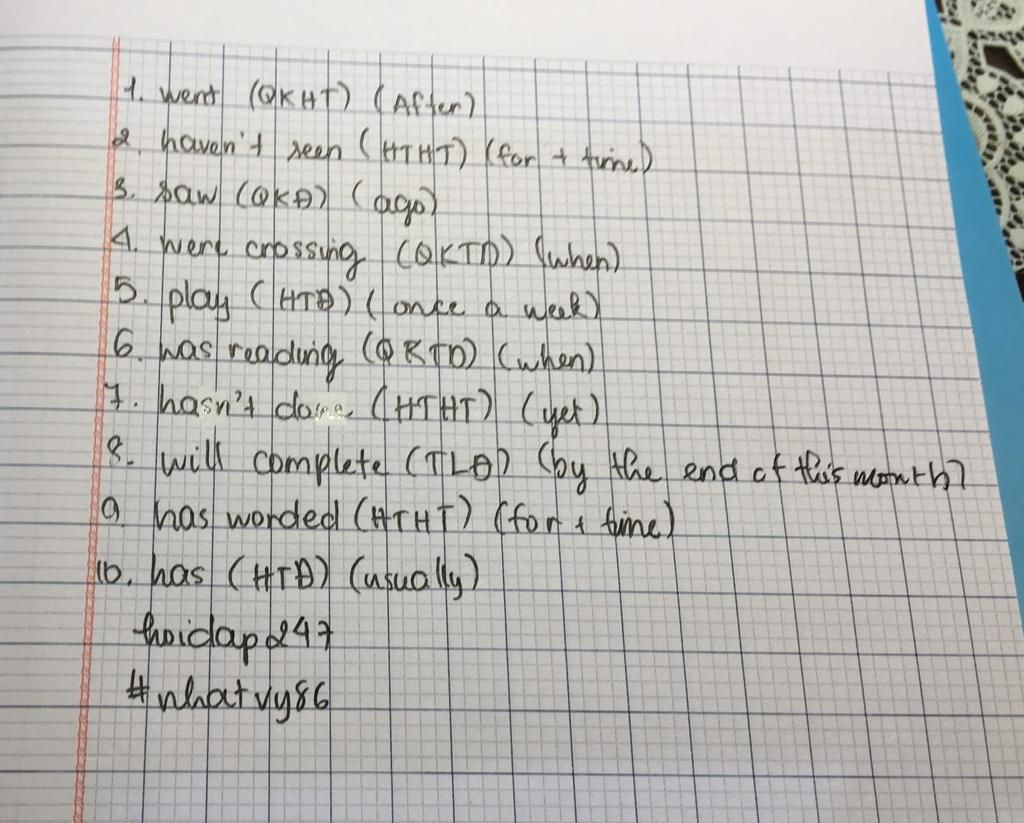 1. went (QKHT) (After)
2. haven't seen (HTHT) (for + time)
3. saw (QKĐ) (ago)
4. were crossing (QKTD) (when)
5. play (HTĐ) (once a week)
6. was reading (QKTD) (when)
7. hasn't done (HTHT) (yet)
8. will complete (TLĐ) (by the end of this month)
9 has worded (HTHT) (for + time)
10. has (HTĐ) (usually)
hoidap247
#nhatvy86